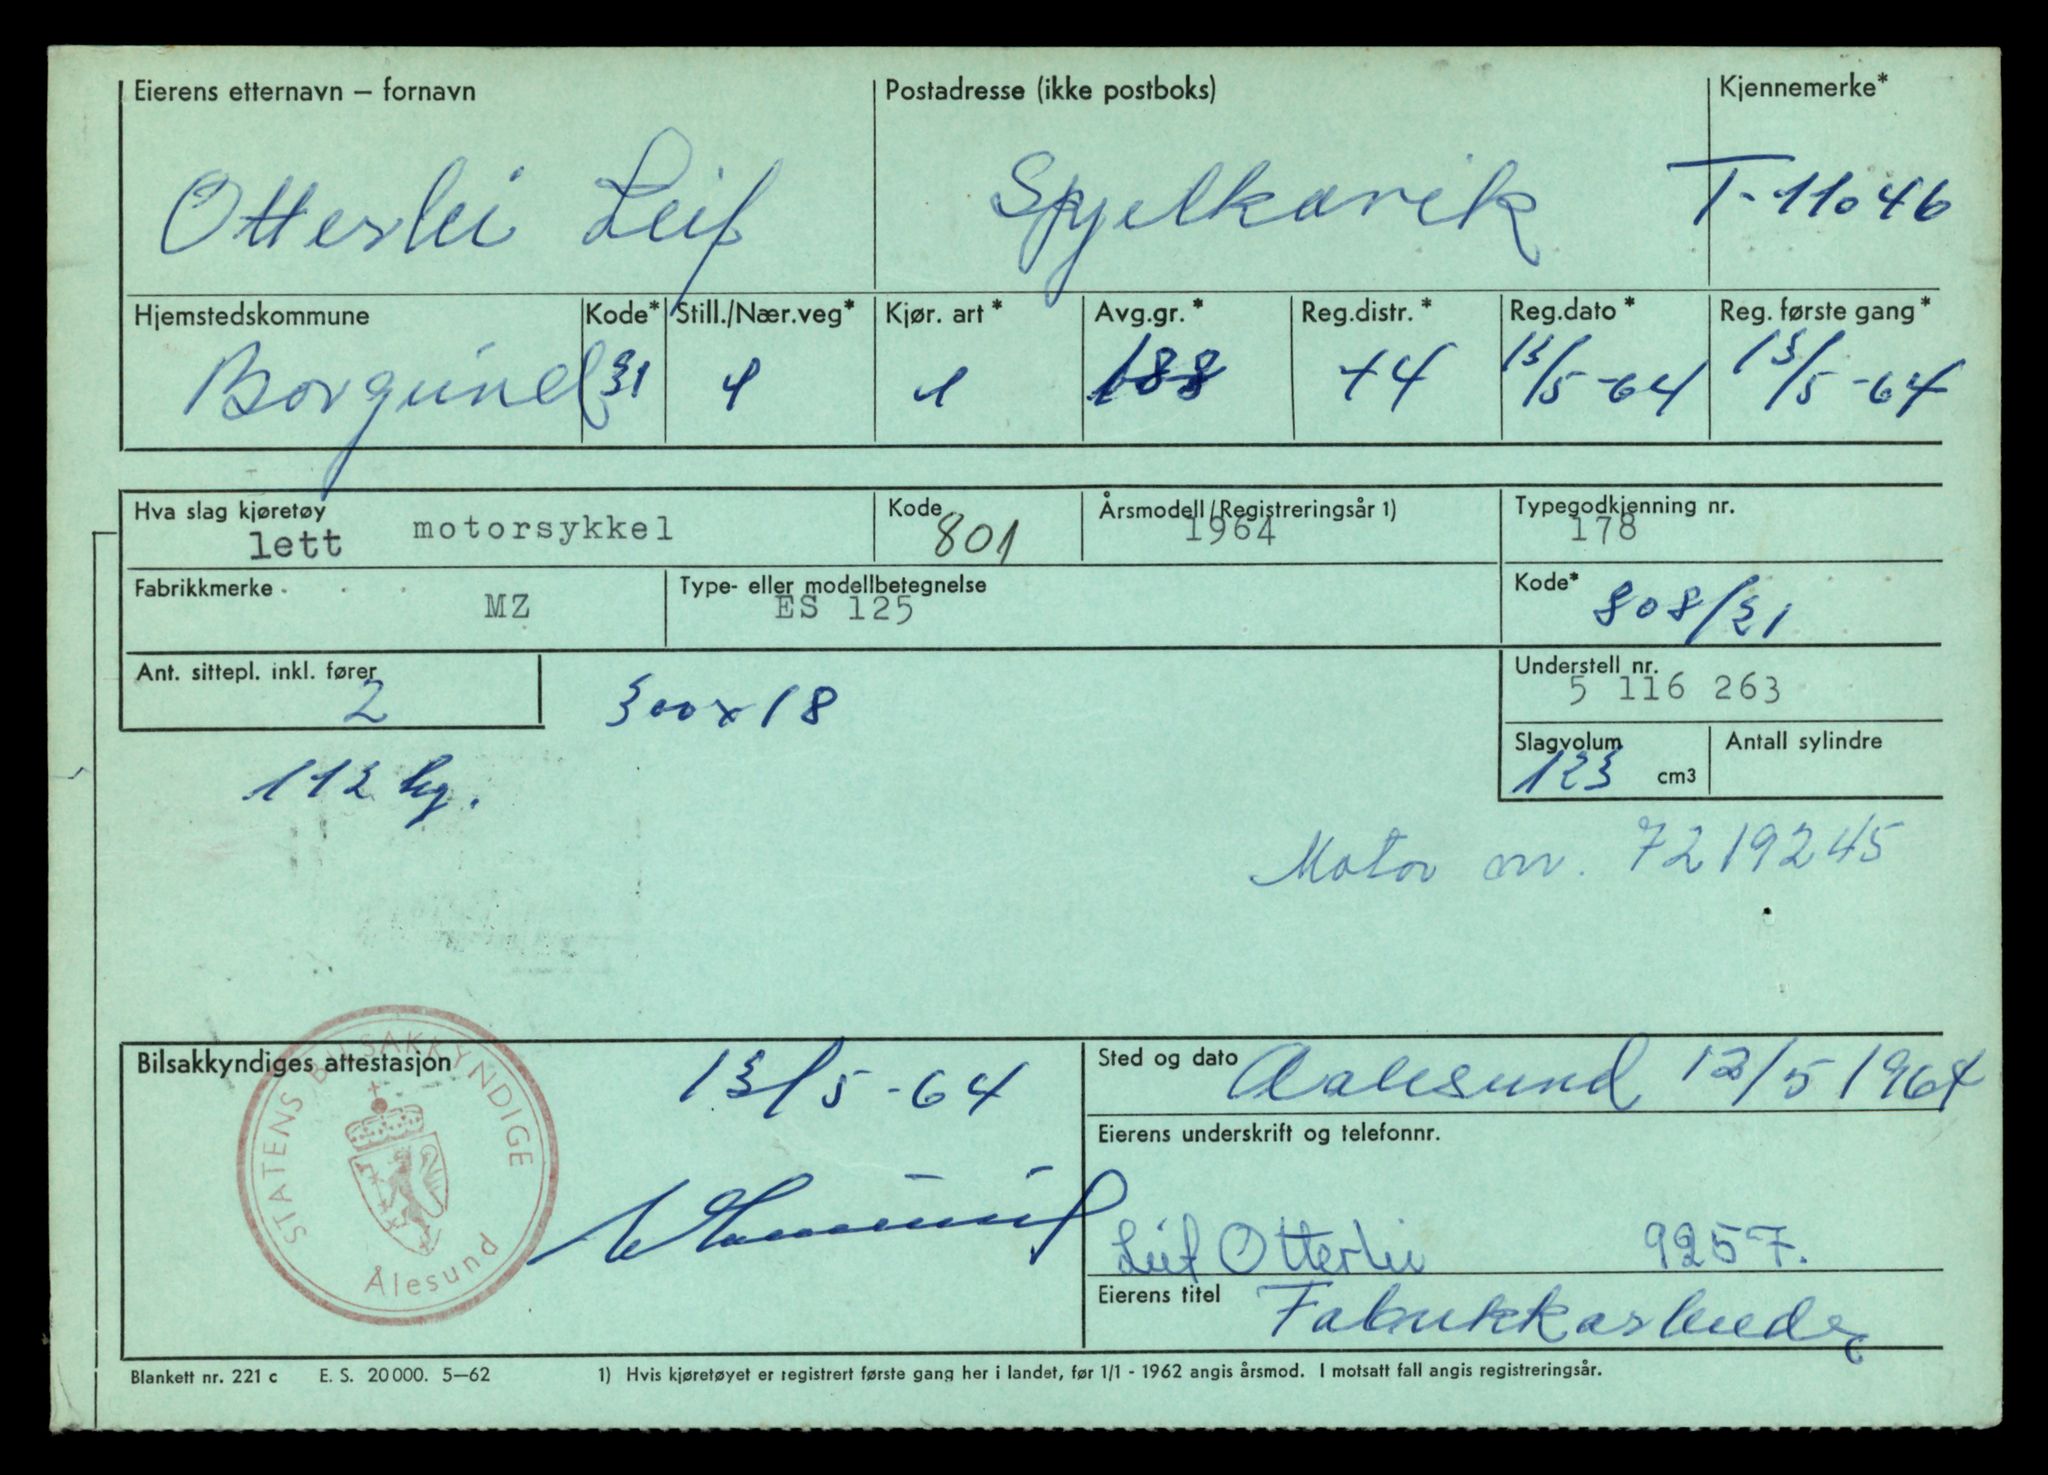 Eierens etternavn – fornavn Postadresse (ikke postboks) Kjennemerke*
Otterlei Leif Spjelkavik T-11046
Hjemstedskommune Kode* Still./Nær.veg* Kjør. art* Avg.gr.* Reg.distr.* Reg.dato* Reg. første gang*
Borgund 31 1 1 188 14 13/5-64 13/5-64
Hva slag kjøretøy Kode Årsmodell/Registreringsår 1) Typegodkjenning nr.
lett motorsykkel 801 1964 178
Fabrikkmerke Type- eller modellbetegnelse Kode*
MZ ES 125 808/31
Ant. sittepl. inkl. fører Understell nr.
2 300x18 5 116 263
Slagvolum Antall sylindre
112 kg. 123 cm3
Motor nr. 7219245
Bilsakkyndiges attestasjon 13/5-64 Sted og dato Aalesund 13/5 1964
STATENS BILSAKKYNDIGE
Ålesund
Eierens underskrift og telefonnr.
Leif Otterlei 9257.
Eierens titel Fabrikkarbeider
Blankett nr. 221 c E. S. 20000. 5–62 1) Hvis kjøretøyet er registrert første gang her i landet, før 1/1 - 1962 angis årsmod. I motsatt fall angis registreringsår.